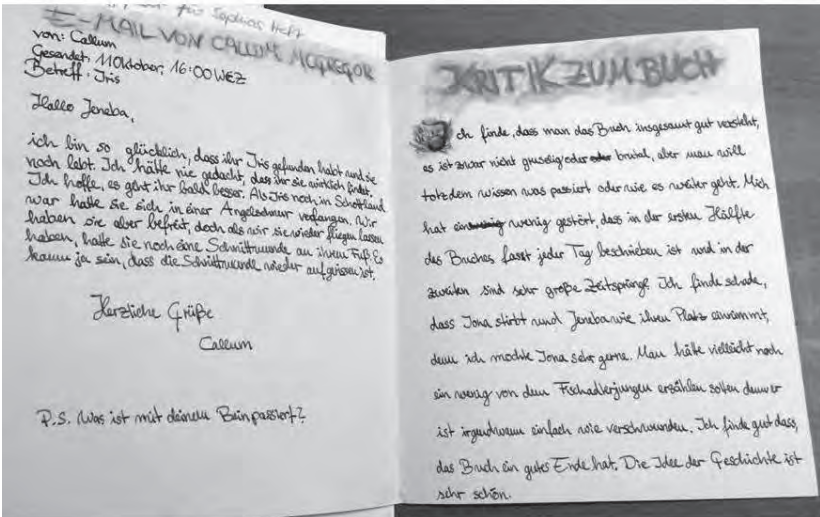 für Sophias Heft
E-MAIL VON CALLUM MCGREGOR
von: Callum
Gesendet: 11 Oktober, 16:00 WEZ
Betreff: Iris
Hallo Jeneba,
ich bin so glücklich, dass ihr Iris gefunden habt und sie
noch lebt. Ich hätte nie gedacht, dass ihr sie wirklich findet.
Ich hoffe, es geht ihr bald besser. Als Iris noch in Schottland
war hatte sie sich in einer Angelschnur verfangen. Wir
haben sie aber befreit, doch als wir sie wieder fliegen lassen
haben, hatte sie noch eine Schnittwunde an ihrem Fuß. Es
kann ja sein, dass die Schnittwunde wieder aufgerissen ist.
Herzliche Grüße
Callum
P.S. Was ist mit deinem Bein passiert?
KRITIK ZUM BUCH
Ich finde, dass man das Buch insgesamt gut versteht,
es ist zwar nicht gruselig oder brutal, aber man will
totzdem wissen was passiert oder wie es weiter geht. Mich
hat wenig gestört, dass in der ersten Hälfte
des Buches fasst jeder Tag beschrieben ist und in der
zweiten sind sehr große Zeitsprünge. Ich finde schade,
dass Iona stirbt und Jeneba wie ihren Platz einnimmt,
denn ich mochte Iona sehr gerne. Man hätte vielleicht noch
ein wenig von dem Fischadlerjungen erzählen sollen denn er
ist irgendwann einfach wie verschwunden. Ich finde gut dass,
das Buch ein gutes Ende hat. Die Idee der Geschichte ist
sehr schön.